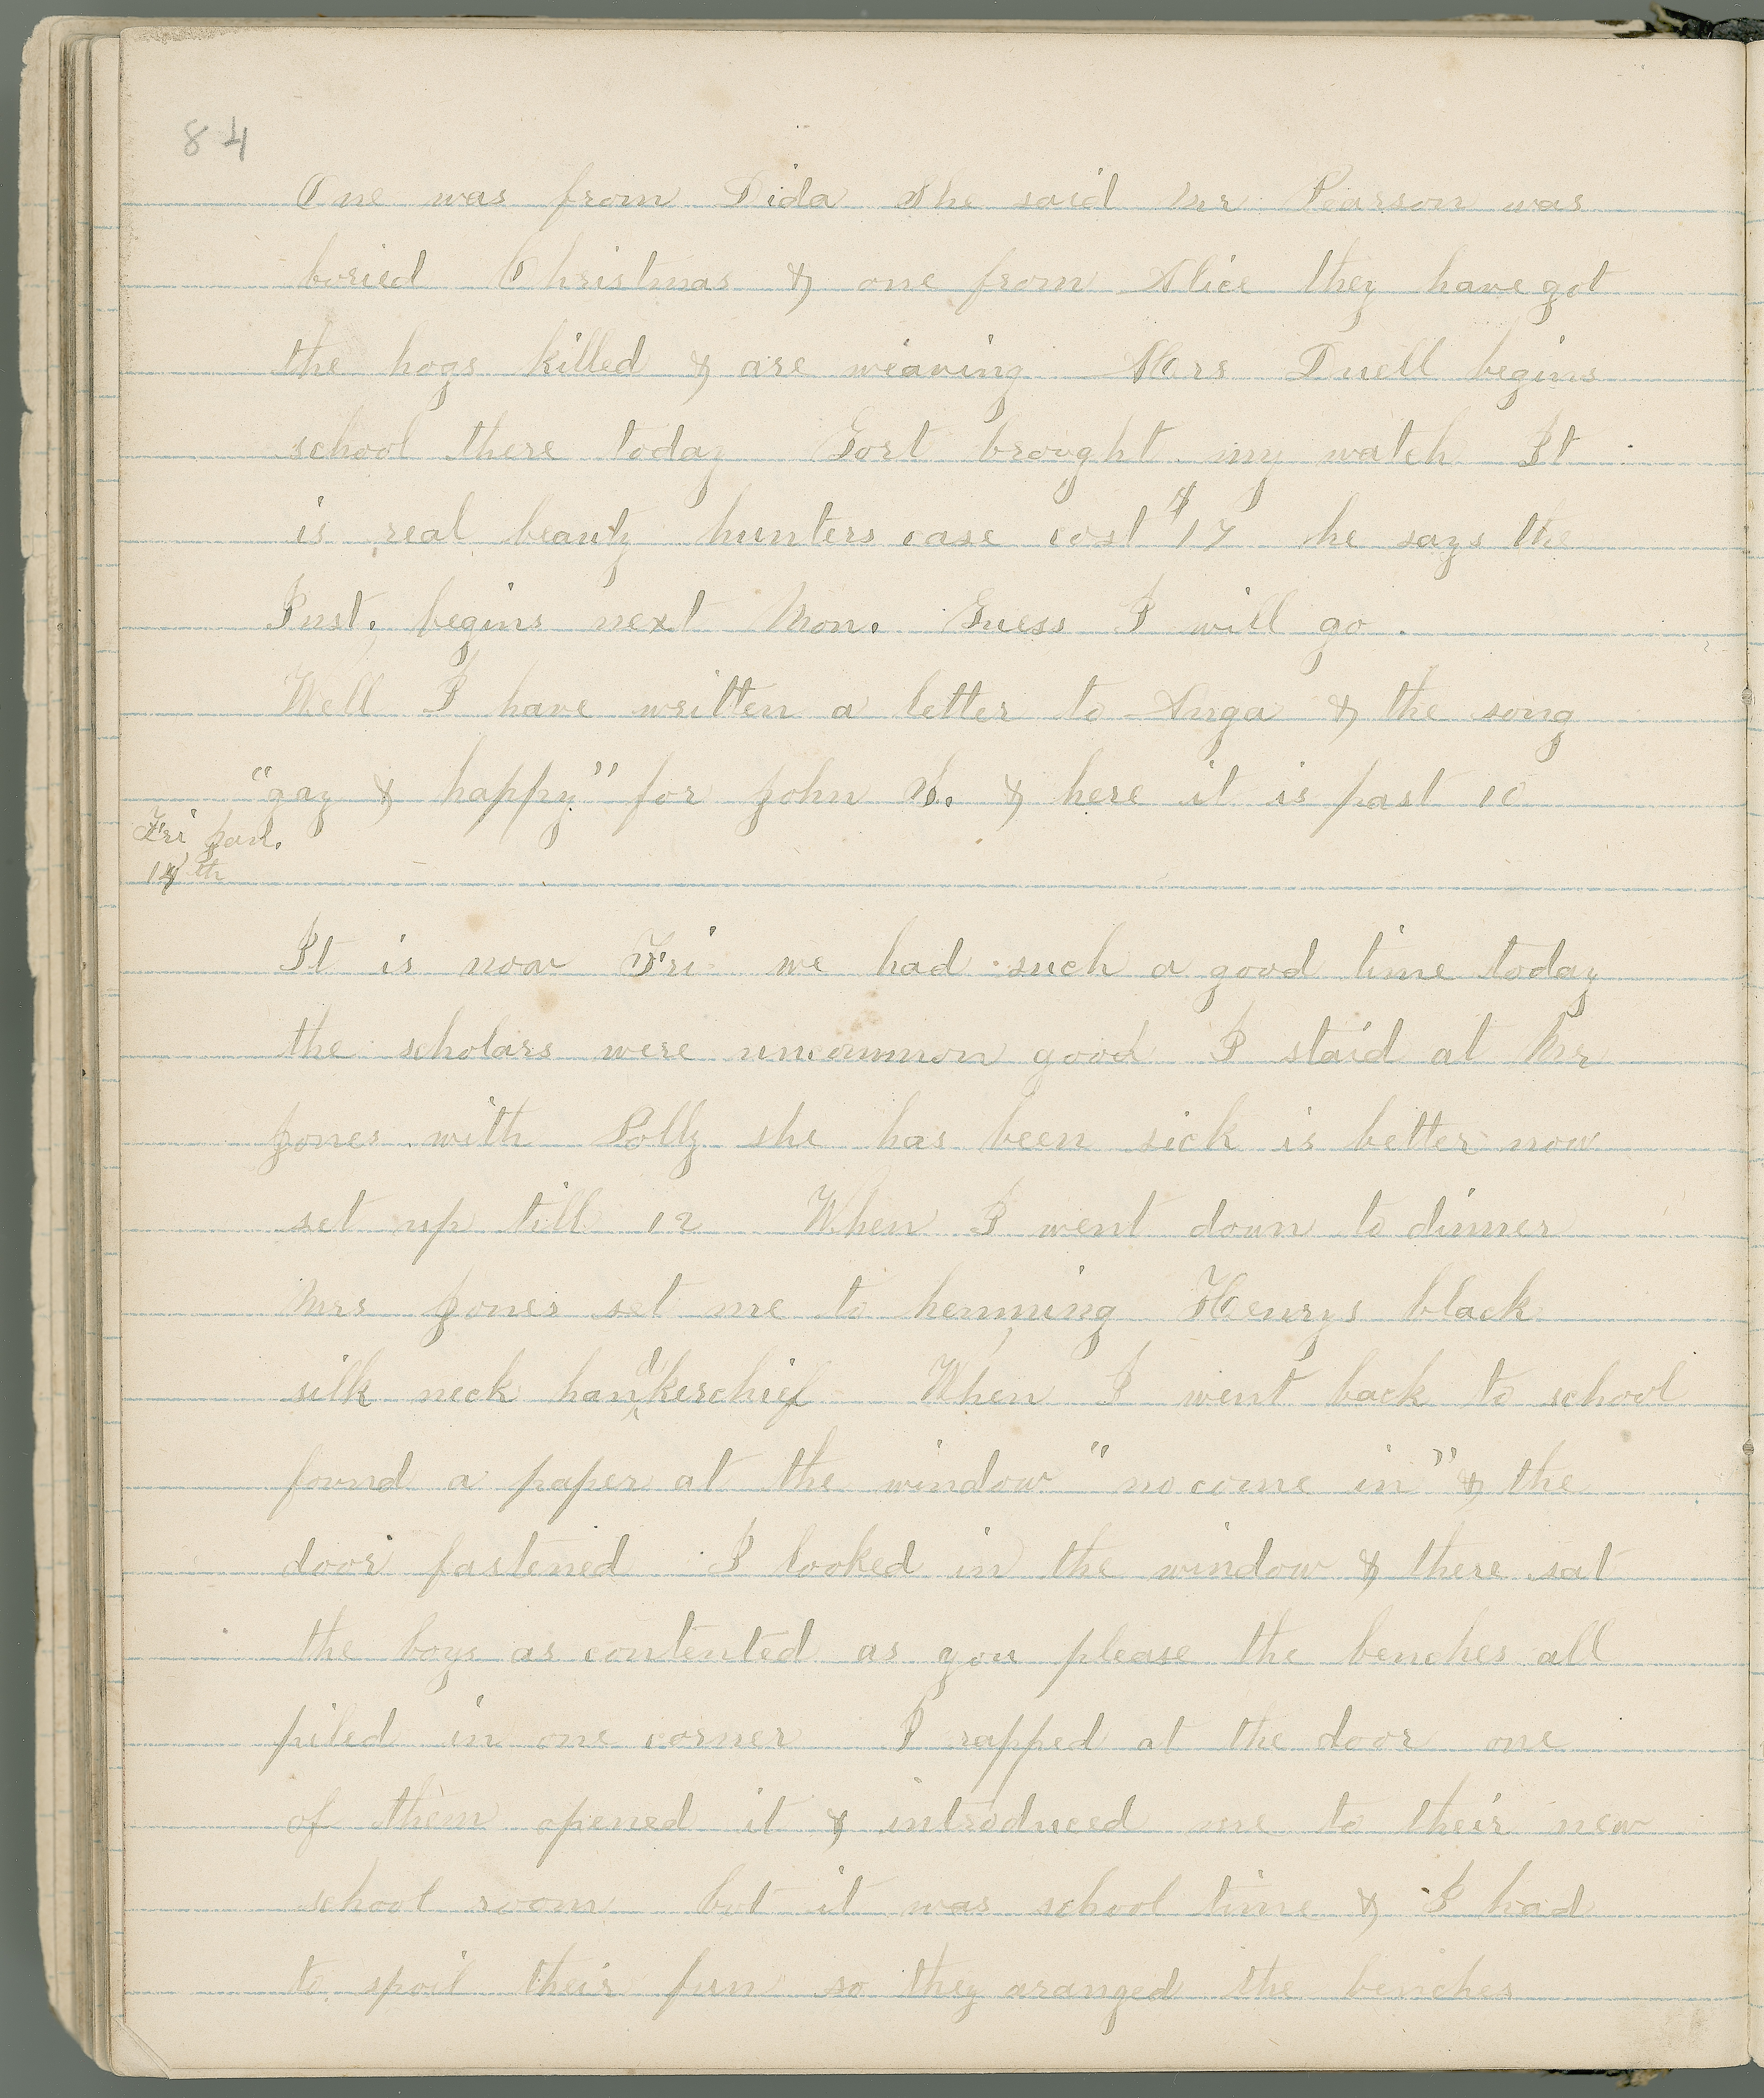 84
One was from Dida She said Mr Pearson was
buried Christmas & one from Alice they have got
the hogs killed & are weaving Mrs Duell begins
school there today Gort brought my watch It
is real beauty hunters case cost $17 he says the
Inst. begins next Mon. Guess I will go.
Well I have written a letter to Anga & the song
"gay & happy" for John S. & here it is past 10
Fri Jan.
14th
It is now Fri we had such a good time today
the scholars were uncommon good I staid at Mr
Jones with Polly she has been sick is better now
set up till 12 When I went down to dinner
Mrs Jones set me to hemming Henrys black
silk neck handkerchief When I went back to school
found a paper at the window "no come in" & the
door fastened I looked in the window & there sat
the boys as contented as you please the benches all
piled in one corner I rapped at the door one
of them opened it & introduced me to their new
school room but it was school time & I had
to spoil their fun so they aranged the benches